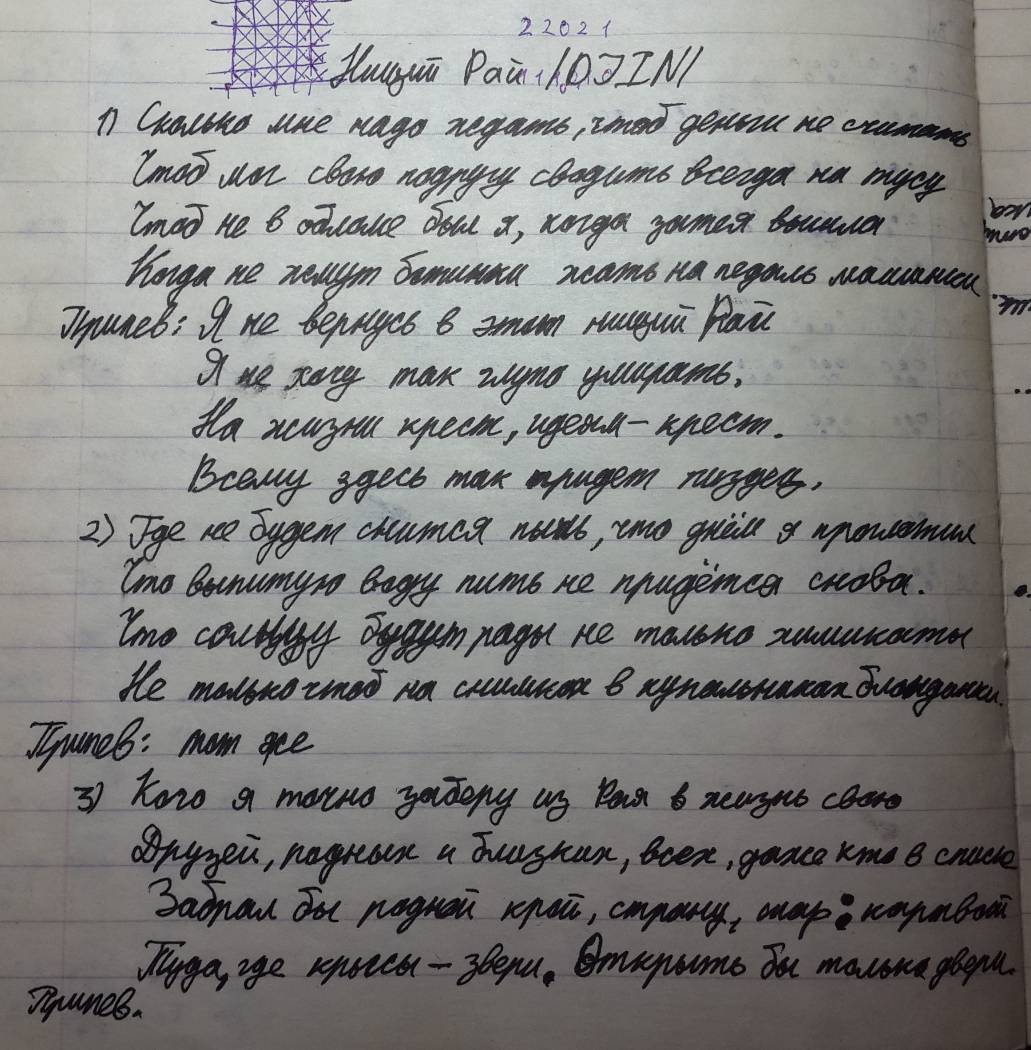 22021
Нищий Рай /DJIN/
1) Сколько мне надо ждать, чтоб деньги не считать
Чтоб мог свою подругу сводить всегда на тусу
Чтоб не в обломе был я, когда затея вышла
Когда не жмут ботинки жать на педаль машинки
Припев: Я не вернусь в этот нищий Рай
Я не хочу так глупо умирать.
На жизни крест, идеям - крест.
Всему здесь так придет пиздец.
2) Где не будет снится пыль, что днём я проглотил
Что выпитую воду пить не придётся снова.
Что солнцу будут рады не только химикаты
Не только чтоб на снимках в купальниках блондинки.
Припев: тот же
3) Кого я точно заберу из Рая в жизнь свою
Друзей, родных и близких, всех, даже кто в списке
Забрал бы родной край, страну, шар:
Туда, где крысы - звери. Открыть бы только двери.
Припев.